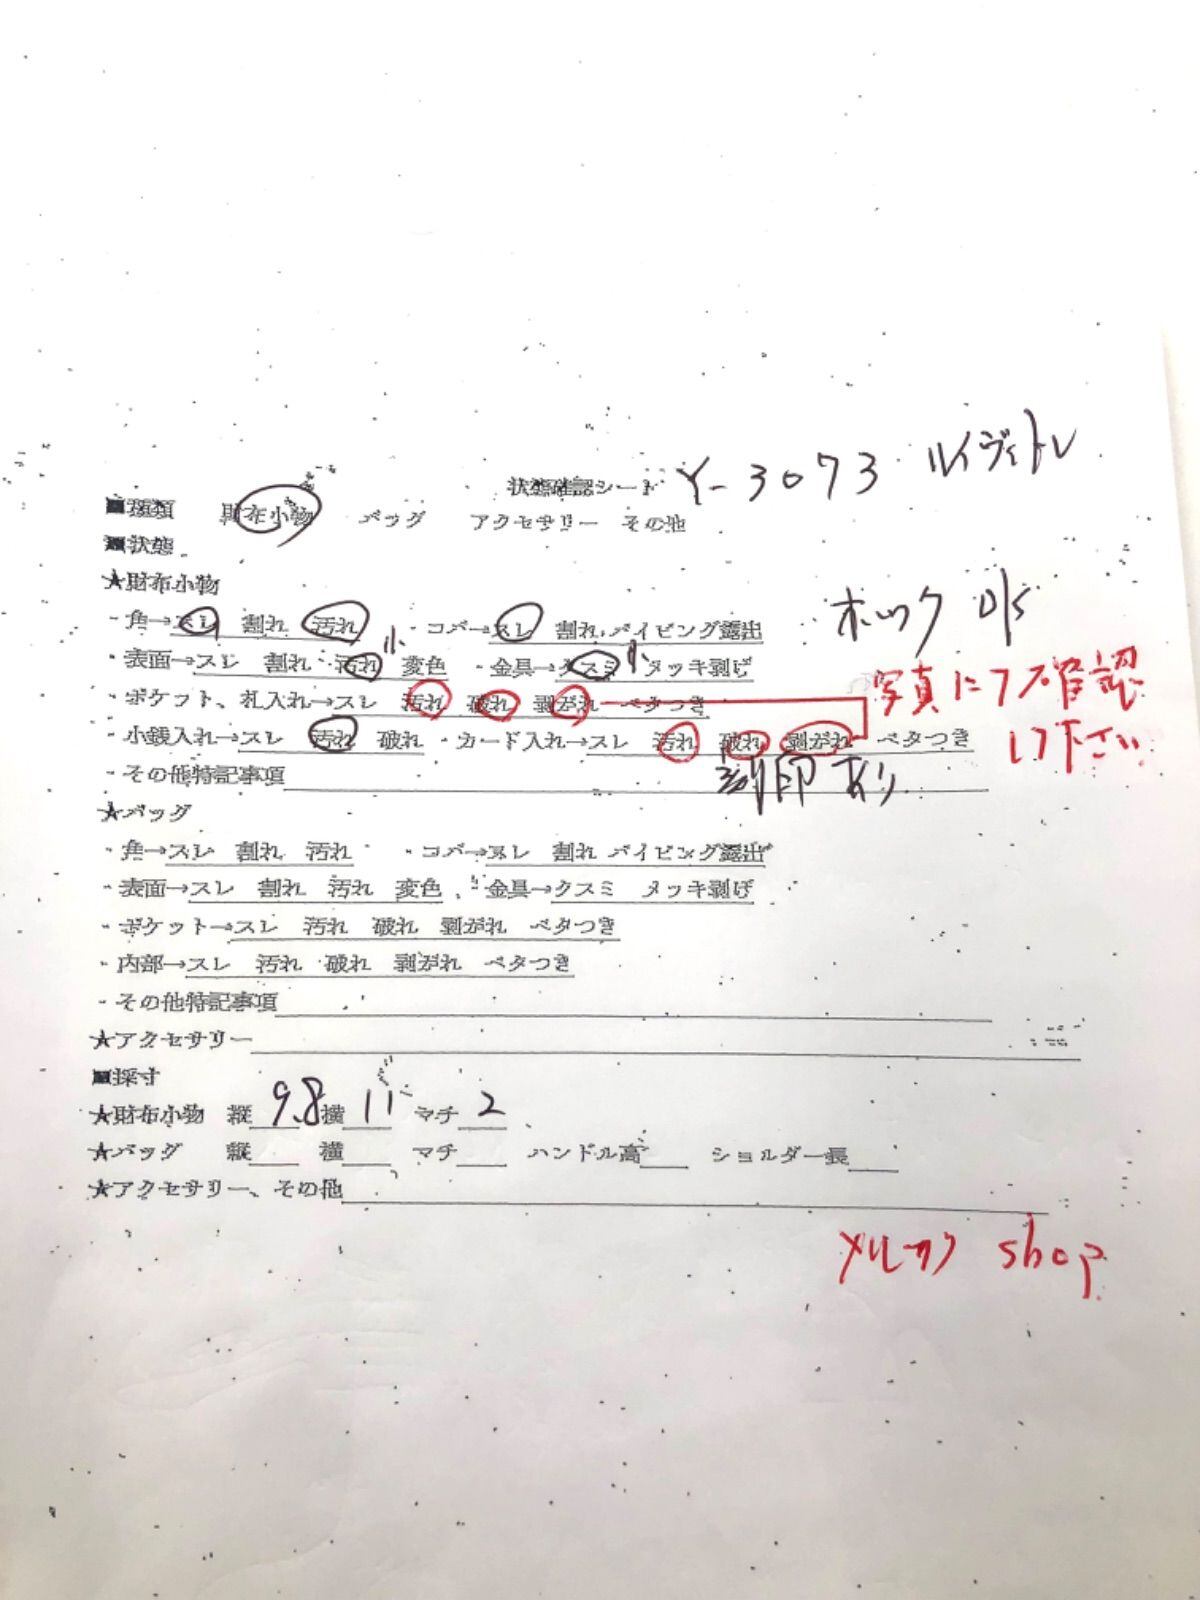 状態確認シート Y-3073 ルイヴィトン
■種類 財布小物 バッグ アクセサリー その他
■状態
★財布小物
・角→スレ 割れ 汚れ ・コバ→スレ 割れ パイピング露出
ホック
・表面→スレ 割れ 汚れ 小 変色 ・金具→クスミ 小 メッキ剥げ
・ポケット、札入れ→スレ 汚れ 破れ 剥がれ ベタつき
写真にて確認
して下さい
・小銭入れ→スレ 汚れ 破れ ・カード入れ→スレ 汚れ 破れ 剥がれ ベタつき
・その他特記事項 刻印あり
★バッグ
・角→スレ 割れ 汚れ ・コバ→スレ 割れ パイピング露出
・表面→スレ 割れ 汚れ 変色 ・金具→クスミ メッキ剥げ
・ポケット→スレ 汚れ 破れ 剥がれ ベタつき
・内部→スレ 汚れ 破れ 剥がれ ベタつき
・その他特記事項
★アクセサリー
■採寸
★財布小物 縦 9.8 横 11 マチ 2
★バッグ 縦 横 マチ ハンドル高 ショルダー長
★アクセサリー、その他
メルカリ shop